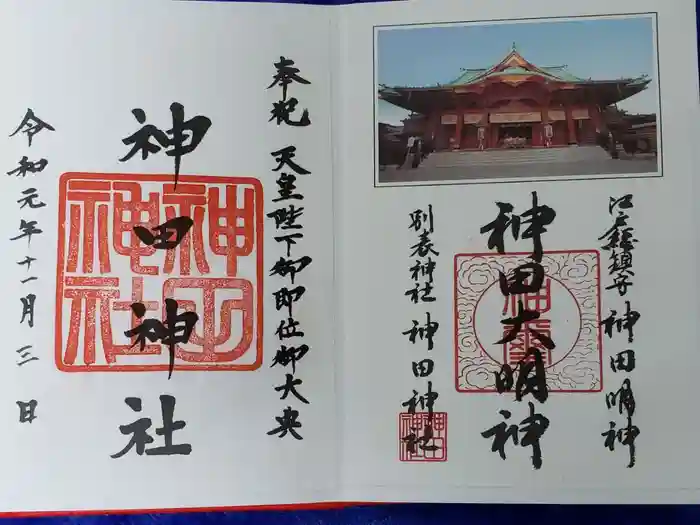 江戸総鎮守 神田明神
神田大明神
別表神社 神田神社
神田神社
奉祝 天皇陛下御即位御大典
神田神社
神田神社
令和元年十一月三日